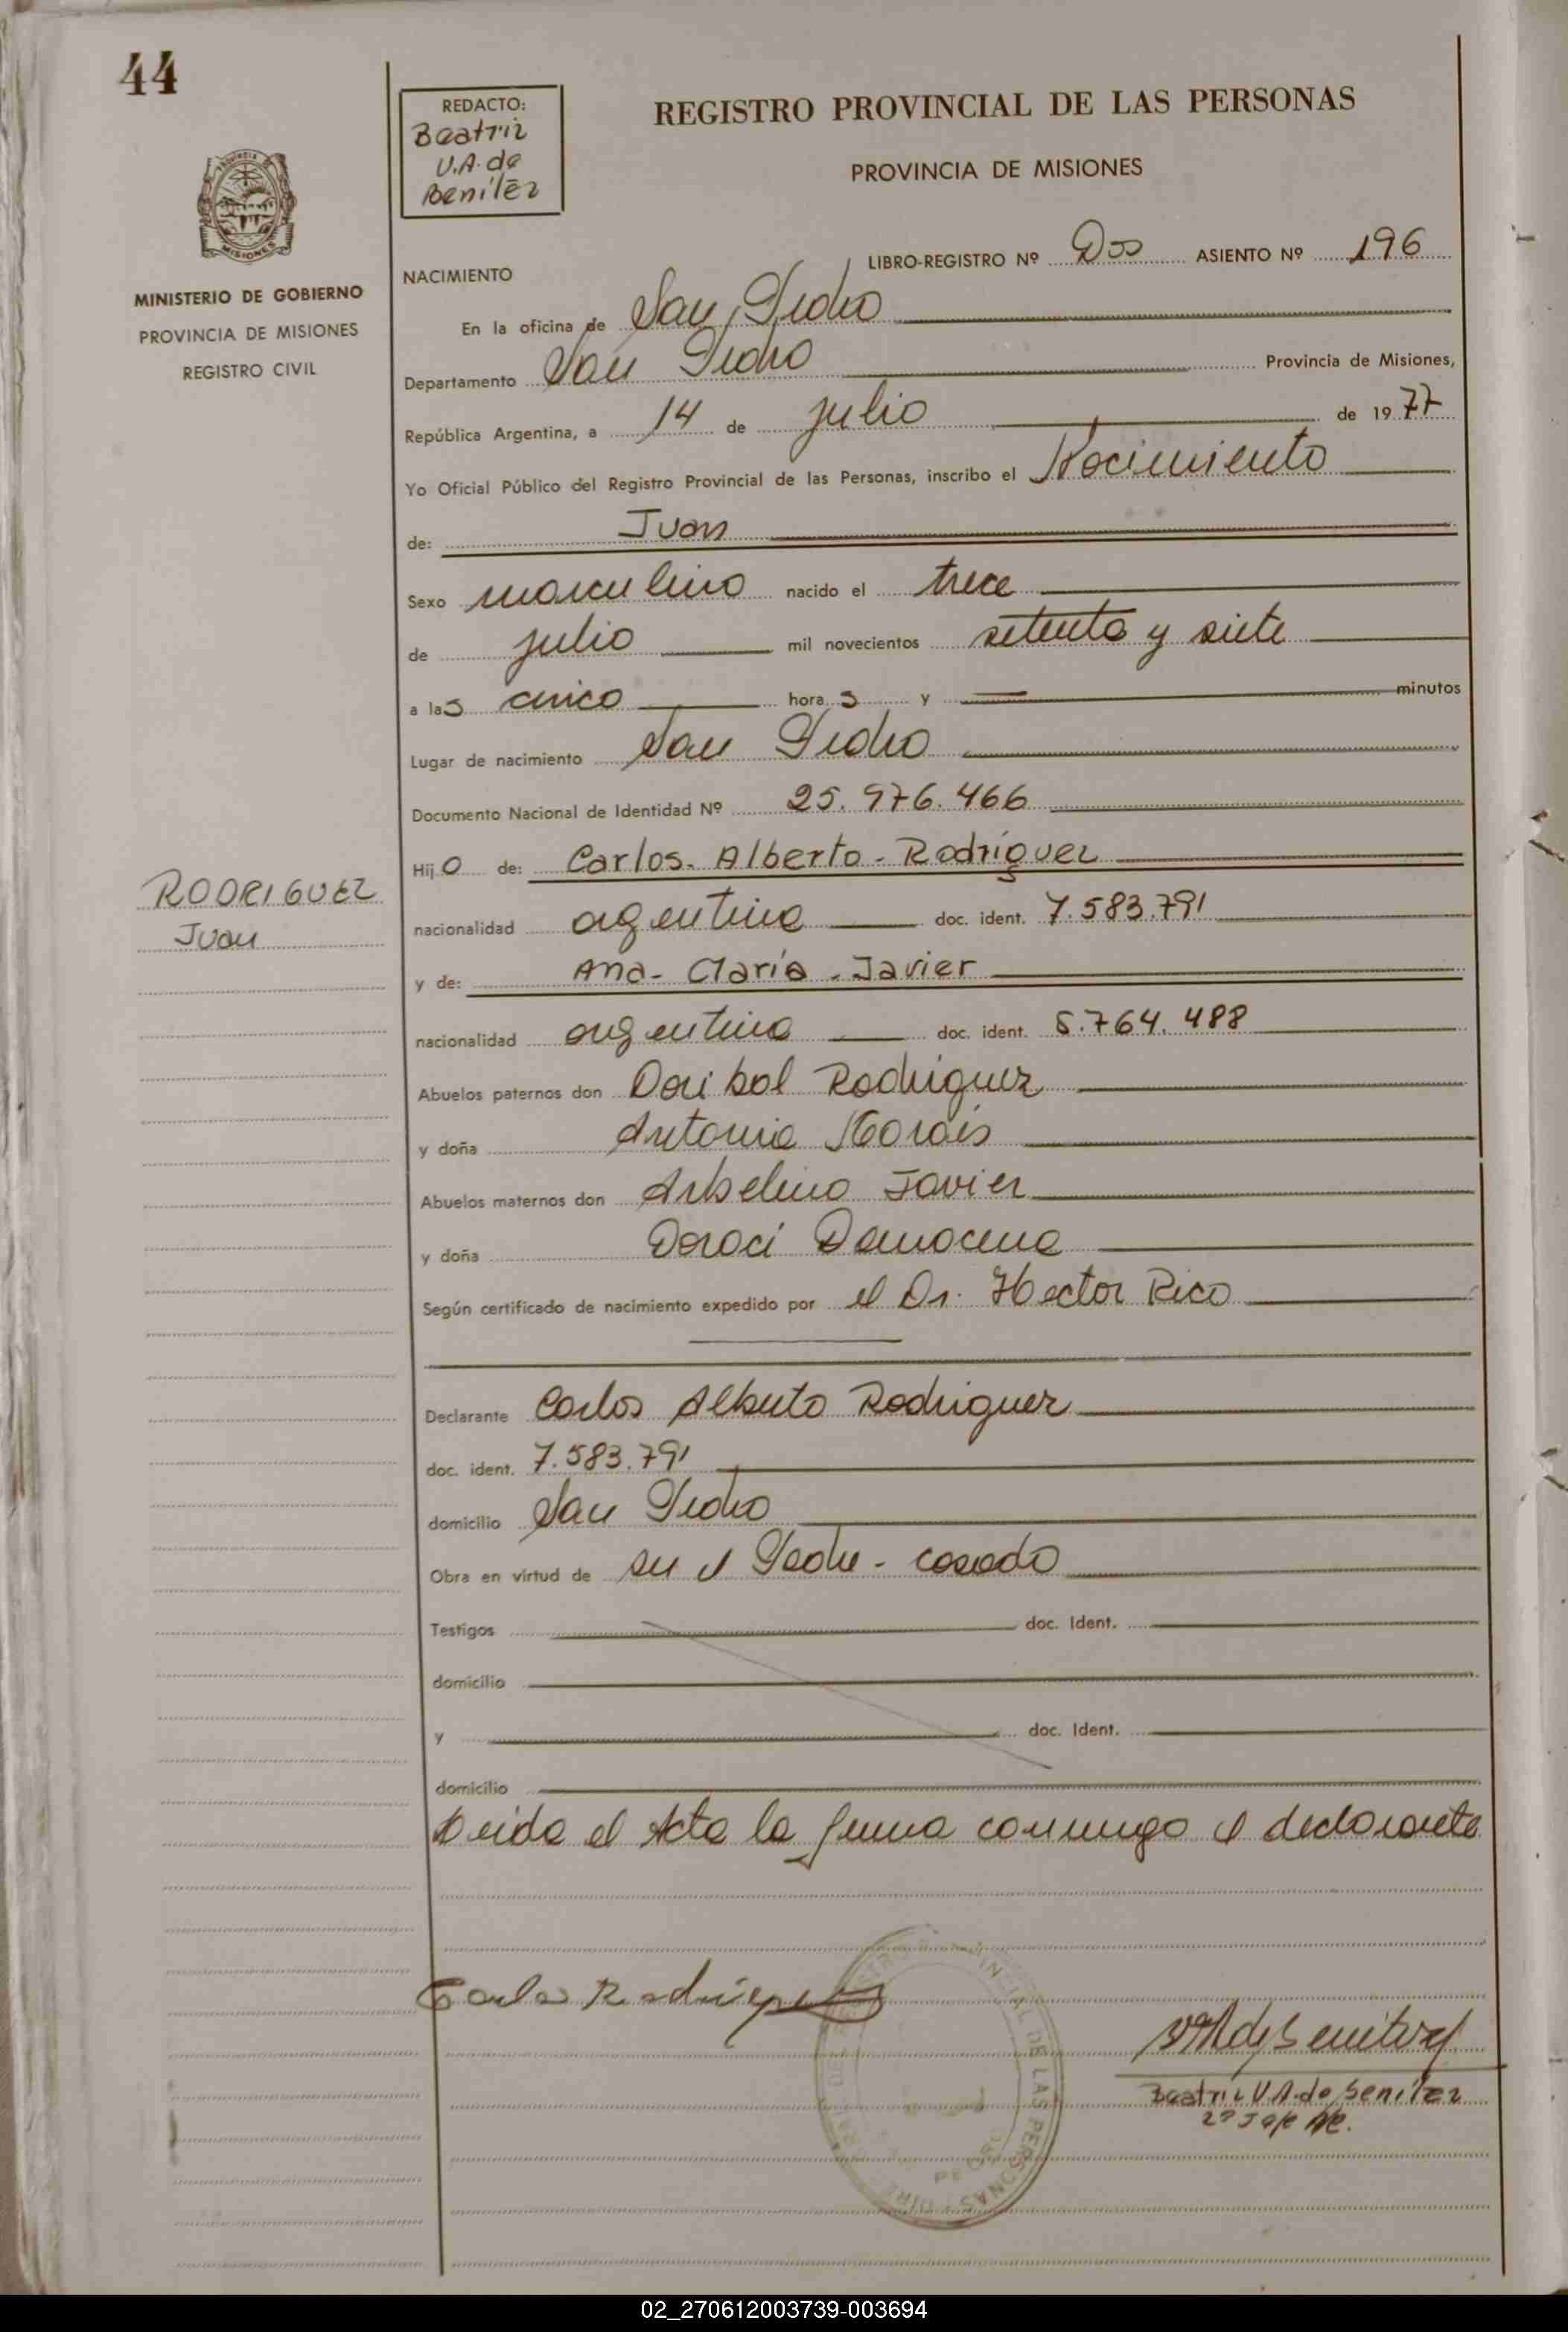 44
REDACTO:
Beatriz
V.A. de
Benitez
REGISTRO PROVINCIAL DE LAS PERSONAS
PROVINCIA DE MISIONES
MISIONES
MINISTERIO DE GOBIERNO
PROVINCIA DE MISIONES
REGISTRO CIVIL
LIBRO-REGISTRO Nº Dos ASIENTO Nº 196
NACIMIENTO
En la oficina de San Pedro
Departamento San Pedro Provincia de Misiones,
República Argentina, a 14 de julio de 1977
Yo Oficial Público del Registro Provincial de las Personas, inscribo el Nacimiento
de: Juan
Sexo masculino nacido el trece
de julio mil novecientos setenta y siete
a las cinco horas y minutos
Lugar de nacimiento San Pedro
Documento Nacional de Identidad Nº 25.976.466
Hijo de: Carlos-Alberto-Rodríguez
RODRIGUEZ
Juan
nacionalidad argentina doc. ident. 7.583.791
y de: Ana-María-Javier
nacionalidad argentina doc. ident. 5.764.488
Abuelos paternos don Rodriguez
y doña Antonia Morais
Abuelos maternos don Arbelino Javier
y doña
Según certificado de nacimiento expedido por el Dr. Hector Rico
Declarante Carlos Alberto Rodriguez
doc. ident. 7.583.791
domicilio San Pedro
Obra en virtud de ser el Padre - casado
Testigos doc. Ident.
domicilio
y doc. Ident.
domicilio
Leida el Acta la firma conmigo el declarante
Carlos Rodriguez
DE LAS PERSONAS
Beatriz V.A. de Benitez
02_270612003739-003694